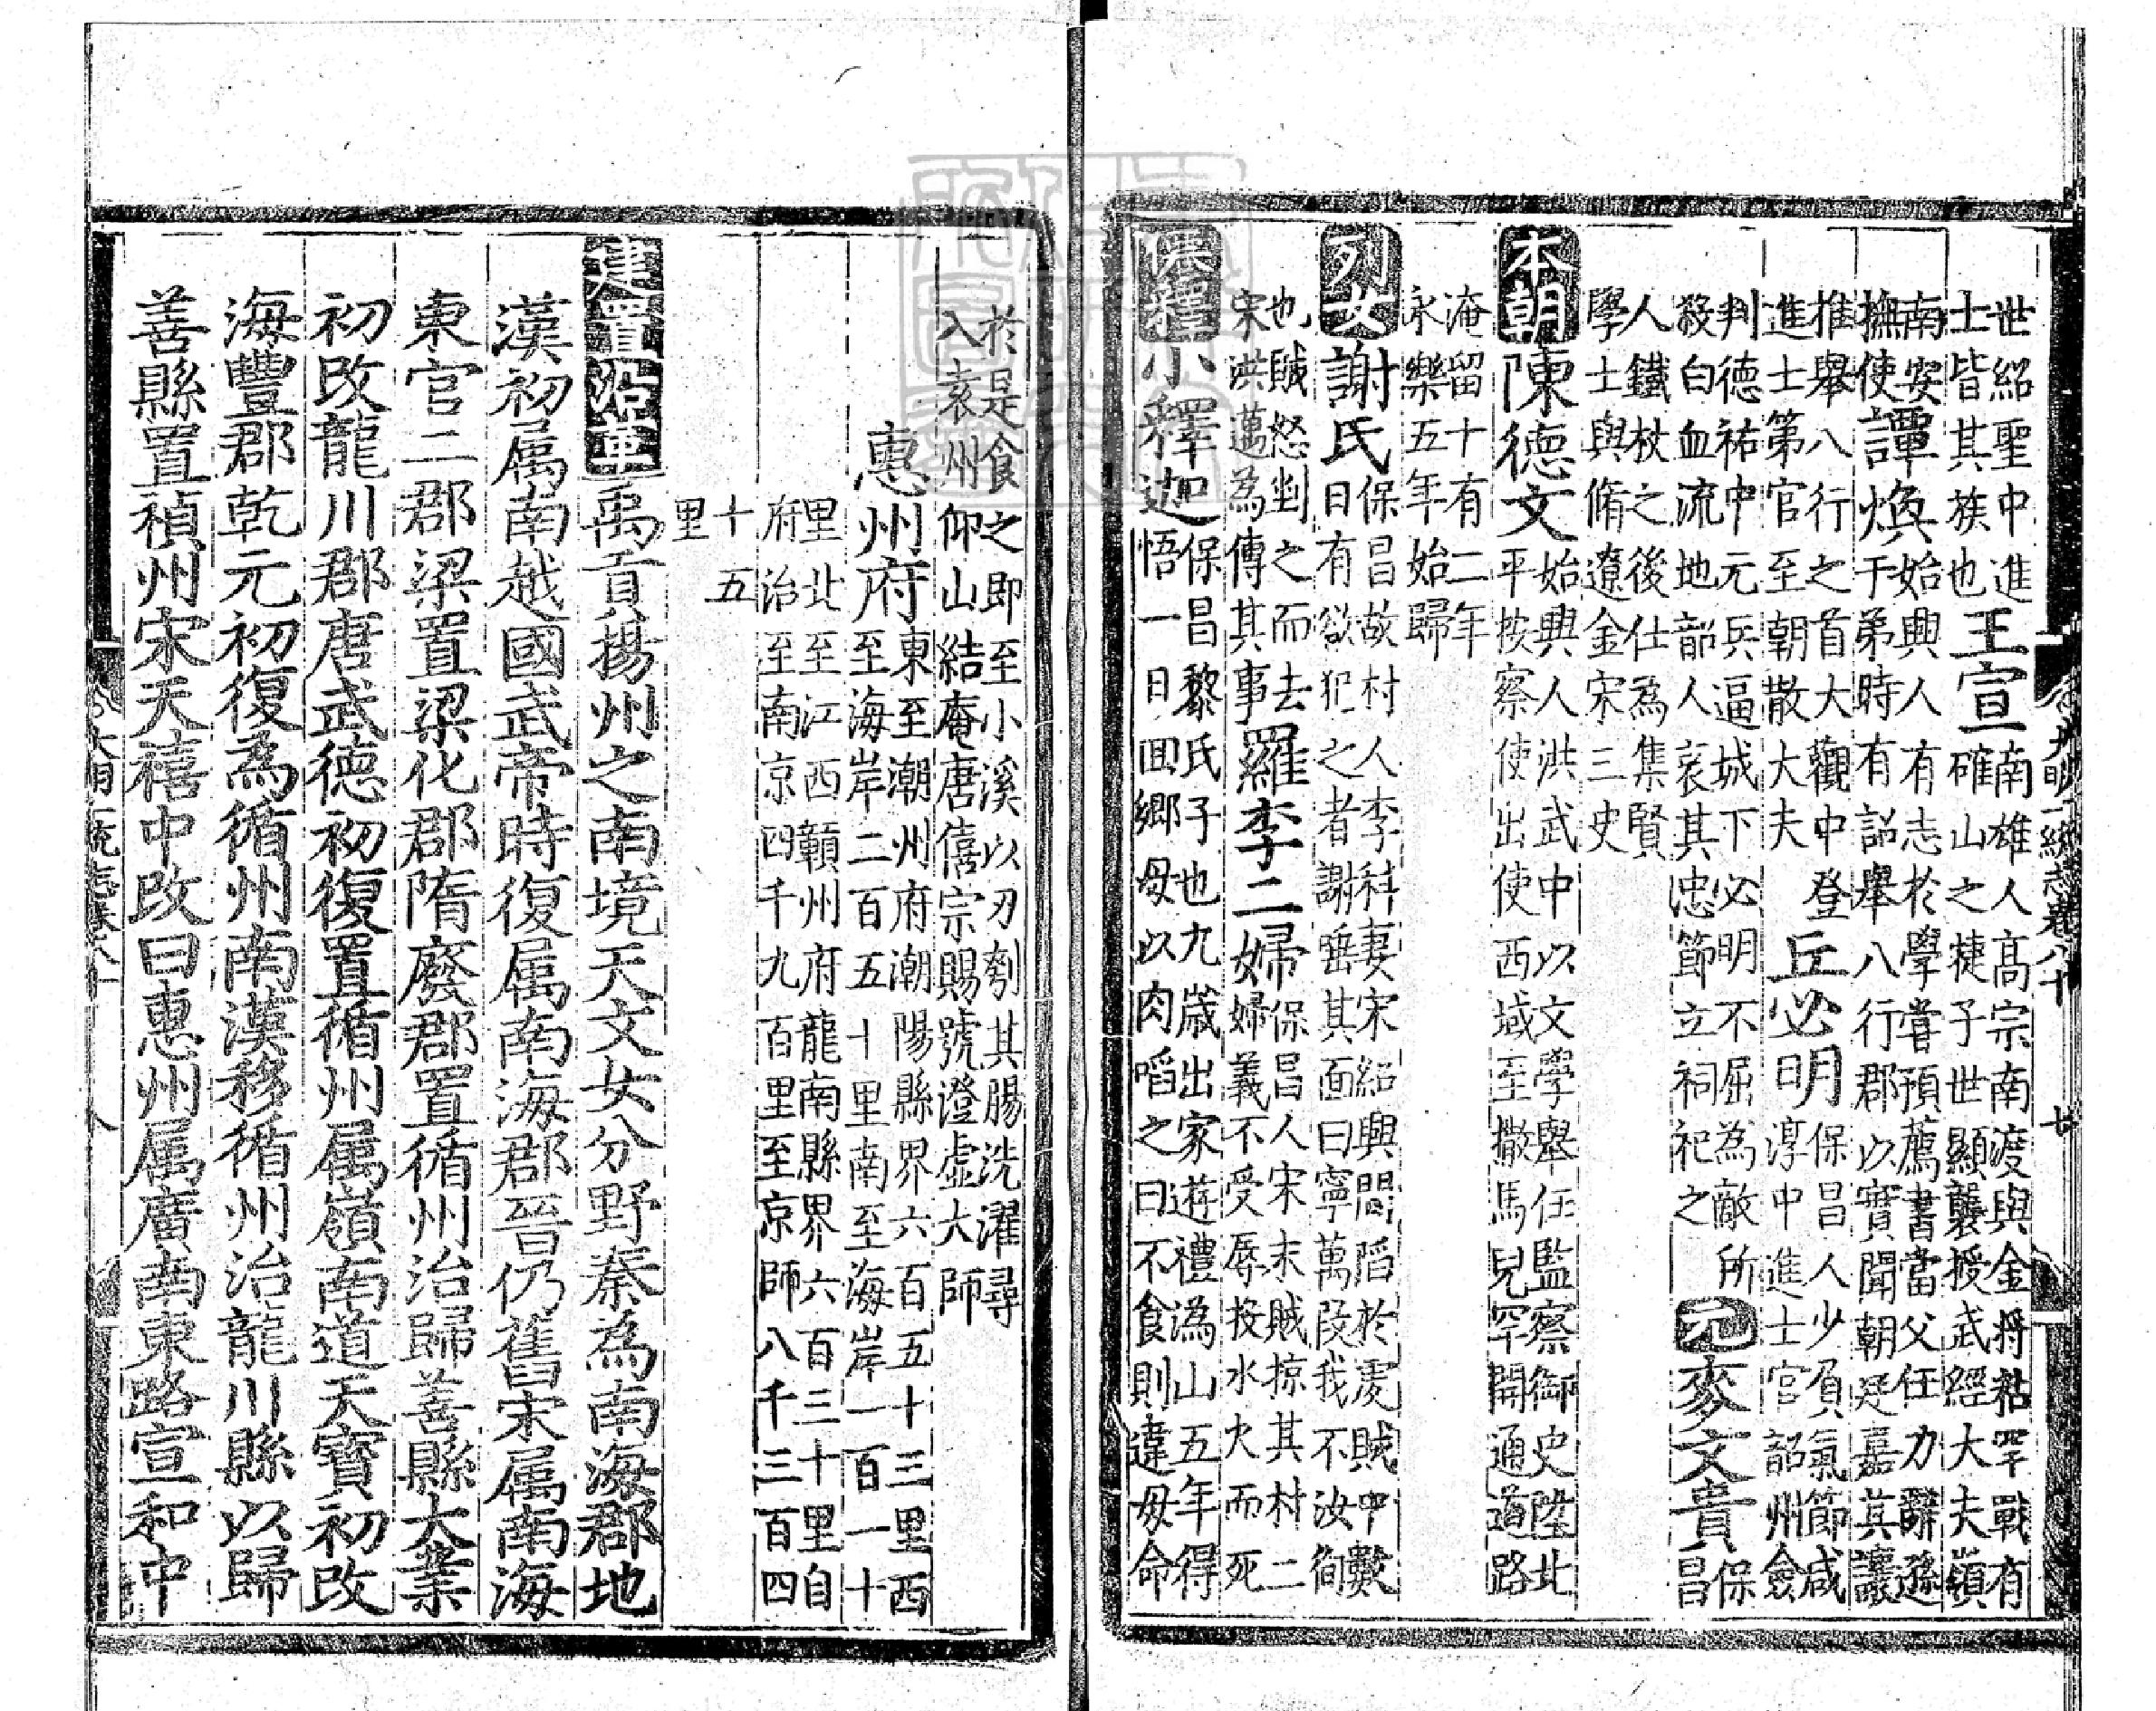 世紹聖中進
士皆其族也
王宣
南雄人高宗南渡與金將粘罕戰有
確山之捷子世顯襲授武經大夫嶺
南安
撫使
譚煥
始興人有志於學嘗預薦書當父任力辭遜
于弟時有詔舉八行郡以實聞朝廷嘉其讓
推舉八行之首大觀中登
進士第官至朝散大夫
丘必明
保昌人少負氣節咸
淳中進士官韶州僉
判德祐中元兵逼城下必明不屈為敵所
殺白血流地韶人哀其忠節立祠祀之
元
麥文貴
保
昌
人鐵杖之後仕為集賢
學士與脩遼金宋三史
本朝
陳德文
始興人洪武中以文學舉任監察御史陞北
平按察使出使西域至撒馬兒罕開通道路
淹留十有二年
永樂五年始歸
列女
謝氏
保昌故村人李科妻宋紹興間陷於虔賊中數
日有欲犯之者謝唾其面曰寧萬段我不汝徇
也賊怒剉之而去
宋洪邁為傳其事
羅李二婦
保昌人宋末賊掠其村二
婦義不受辱投水火而死
小釋迦
保昌黎氏子也九歲出家遊禮為山五年得
悟一日回鄉母以肉啗之曰不食則違母命
於是食之即至小溪以刀刳其腸洗濯尋
入袁州仰山結庵唐僖宗賜號澄虛大師
惠州府
東至潮州府潮陽縣界六百五十三里西
至海岸二百五十里南至海岸一百一十
里北至江西贛州府龍南縣界六百三十里自
府治至南京四千九百里至京師八千三百四
十五
里
建置沿革
禹貢揚州之南境天文女分野秦為南海郡地
漢初属南越國武帝時復属南海郡晉仍舊宋属南海
東官二郡梁置梁化郡隋廢郡置循州治歸善縣大業
初改龍川郡唐武德初復置循州属嶺南道天寶初改
海豐郡乾元初復為循州南漢移循州治龍川縣以歸
善縣置禎州宋天禧中改曰惠州属廣南東路宣和中